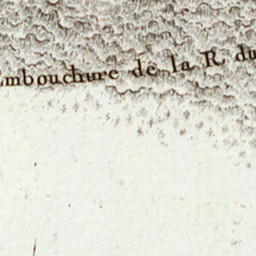 mbouchure de la R. du